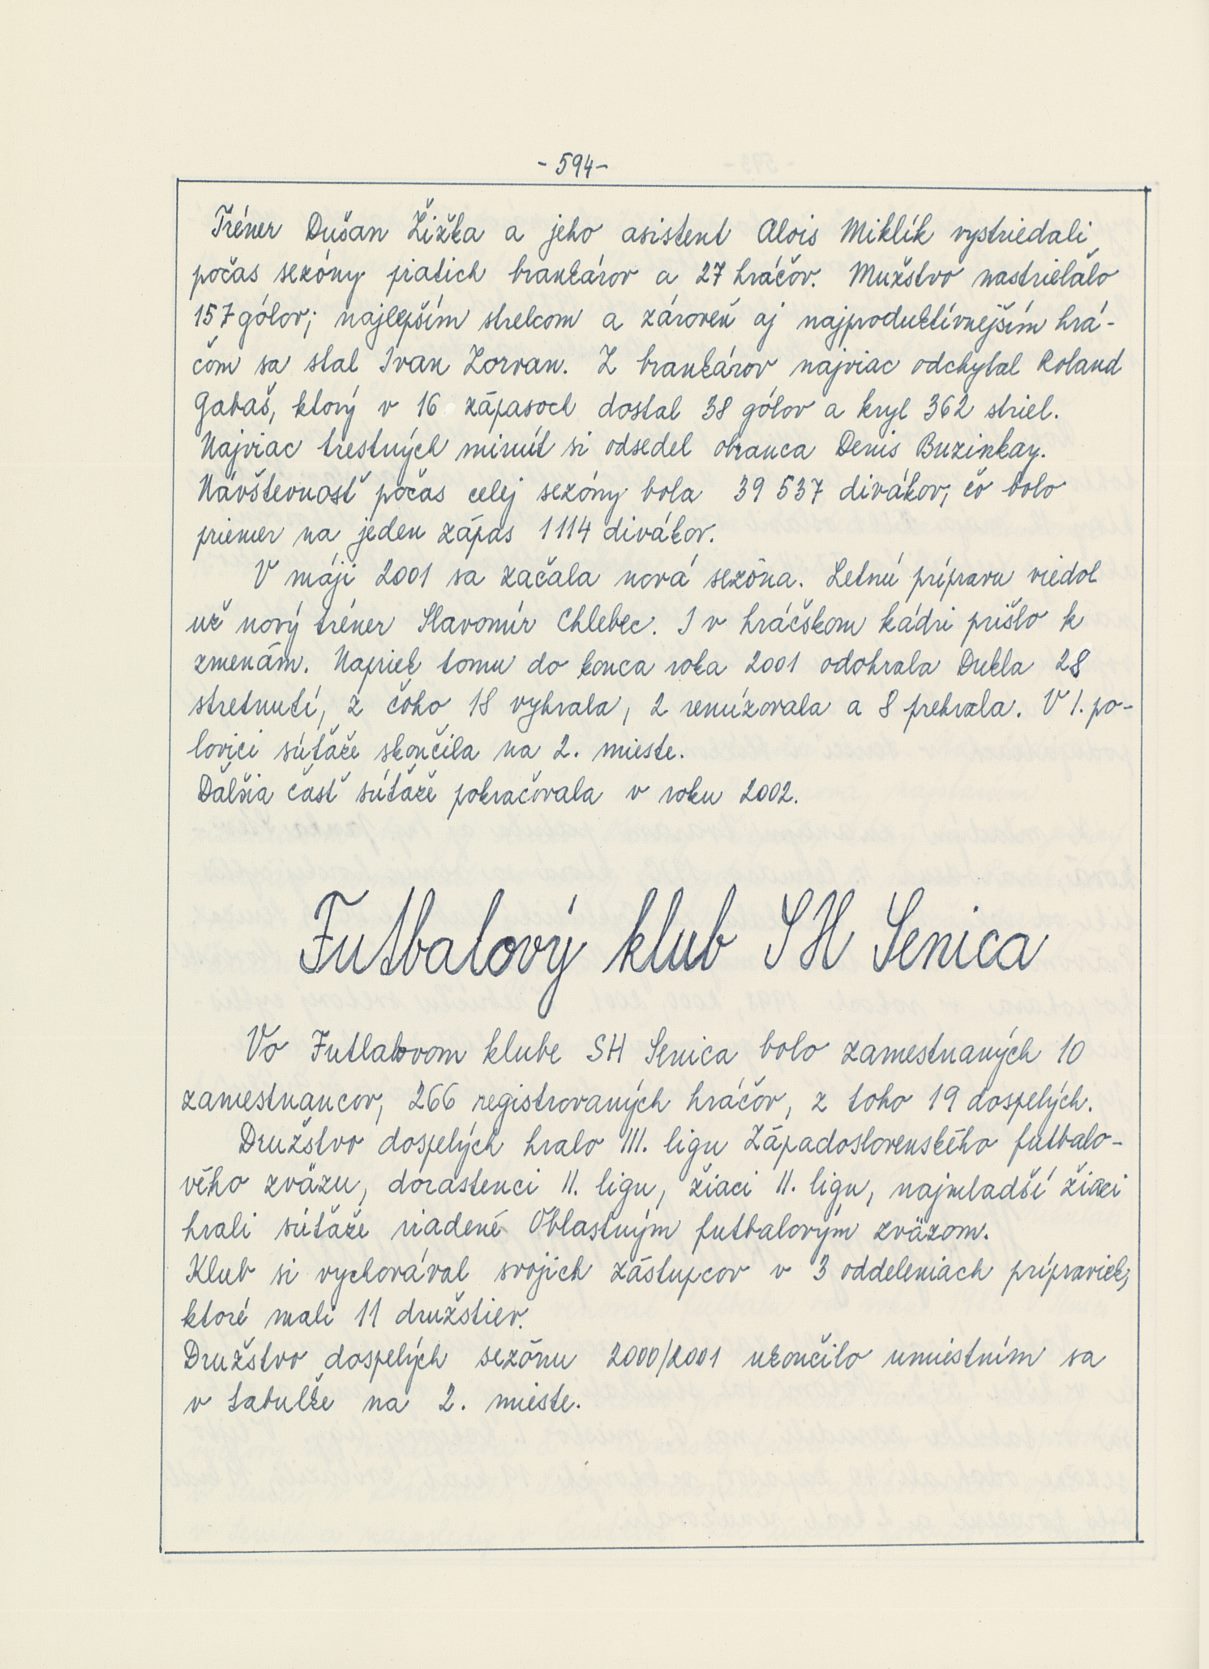 - 594 -
Tréner Dušan Žižka a jeho asistent Alois Miklík vystriedali
počas sezóny piatich brankárov a 27 hráčov. Mužstvo nastrielalo
157 gólov; najlepším strelcom a zároveň aj najproduktívnejším hrá-
čom sa stal Ivan Zorvan. Z brankárov najviac odchytal Roland
Gabaš, ktorý v 16 zápasoch dostal 38 gólov a kryl 362 striel.
Najviac trestných minút si odsedel obranca Denis Buzinkay.
Návštevnosť počas celej sezóny bola 39 537 divákov, čo bolo
priemer na jeden zápas 1114 divákov.
V máji 2001 sa začala nová sezóna. Letnú prípravu viedol
už nový tréner Slavomír Chlebec. I v hráčskom kádri prišlo k
zmenám. Napriek tomu do konca roka 2001 odohrala Dukla 28
stretnutí, z čoho 18 vyhrala, 2 remízovala a 8 prehrala. V 1. po-
lovici súťaže skončila na 2. mieste.
Ďalšia časť súťaže pokračovala v roku 2002.
Futbalový klub SH Senica
Vo Futbalovom klube SH Senica bolo zamestnaných 10
zamestnancov, 266 registrovaných hráčov, z toho 19 dospelých.
Družstvo dospelých hralo III. ligu Západoslovenského futbalo-
vého zväzu, dorastenci II. ligu, žiaci II. ligu, najmladší žiaci
hrali súťaže riadené Oblastným futbalovým zväzom.
Klub si vychovával svojich zástupcov v 3 oddeleniach prípraviek,
ktoré mali 11 družstiev.
Družstvo dospelých sezónu 2000/2001 ukončilo umiestním sa
v tabuľke na 2. mieste.